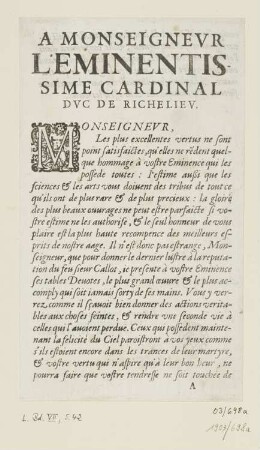 A MONSEIGNEVR
L'EMINENTIS-
SIME CARDINAL
DVC DE RICHELIEV.
MONSEIGNEVR,
Les plus excellentes vertus ne sont
point satisfaictes, qu'elles ne rēdent quel-
que hommage à vostre Eminence qui les
possede toutes : I'estime aussi que les
sciences & les arts vous doiuent des tribus de tout ce
qu'ils ont de plus rare & de plus precieux : la gloire
des plus beaux ouurages ne peut estre parfaicte si vo-
stre estime ne les authorise, & le seul honneur de vous
plaire est la plus haute recompence des meilleurs es-
prits de nostre aage. Il n'est donc pas estrange, Mon-
seigneur, que pour donner le dernier lustre à la reputa-
tion du feu sieur Callot, ie presente à vostre Eminence
ses tables Deuotes, le plus grand œuure & le plus ac-
comply qui soit iamais sorty de ses mains. Vous y ver-
rez, comme il sçauoit bien donner des actions verita-
bles aux choses feintes, & rendre vne seconde vie à
celles qui l'auoient perdue. Ceux qui possedent mainte-
nant la felicité du Ciel paroistront à vos yeux comme
s'ils estoient encore dans les trances de leur martyre,
& vostre vertu qui n'aspire qu'à leur bon heur, ne
pourra faire que vostre tendresse ne soit touchée de
A
L. Bd. VII, S. 42
03/698a